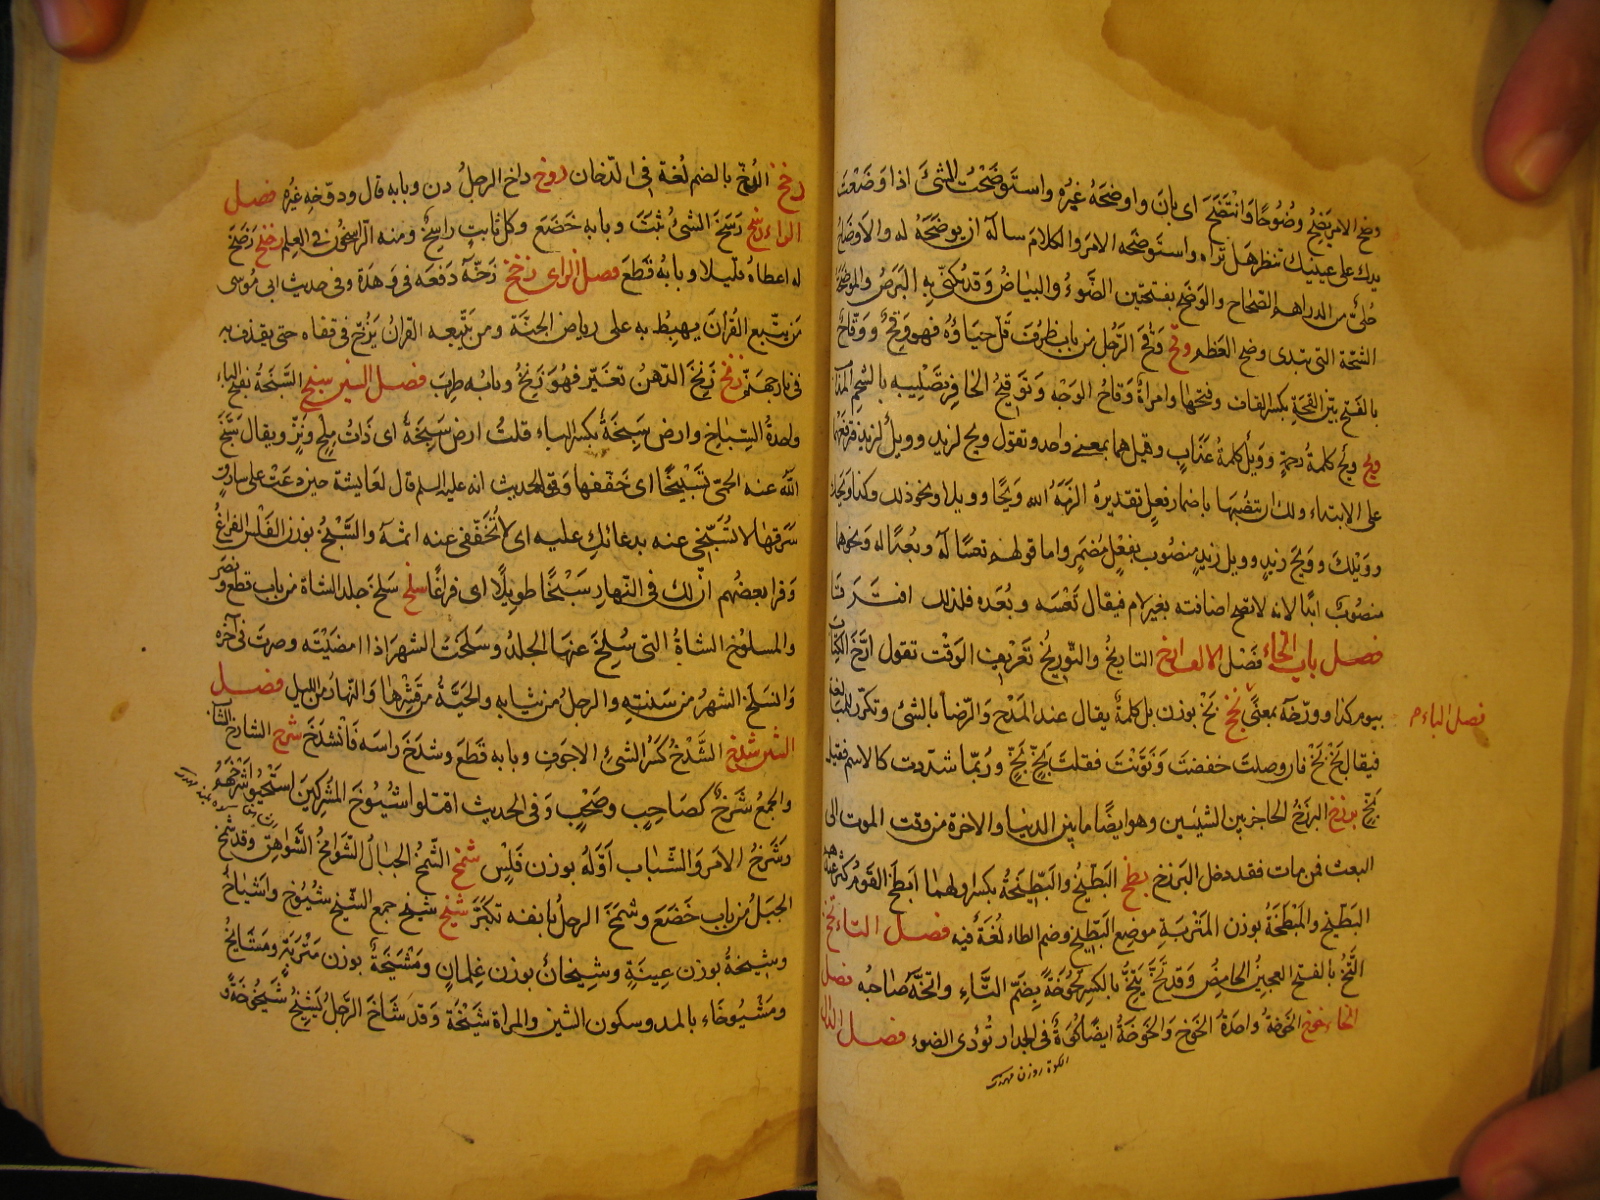 وضح الامر يتضح وُضُوحًا وَاتّضَحَ اى بَانَ واوضحَهُ غيرُه واستَوضَحْتُ الشئَ اذا وَضَعْتَ
يدك على عينيك تنظر هل تراه واستوضحه الامرَ والكلامَ ساله ان يوضحَهُ له والاوضاح
حُلىٌّ من الدراهم الصحاح والوَضَح بفتحتين الضَّوءُ والبياضُ وَقد يُكنّى بِه البَرَصُ والموضحة
الشجّة التى تبدى وضح العَظم وقح وَقُحَ الرّجُل من باب ظرُفَ قَلّ حَيَاؤُه فهو وَقِحٌ وَوَقَاحٌ
بالفَتح بيّن القِحَةِ بكسر القاف وفتحها وامراةٌ وَقَاحُ الوَجْه وَتَوقيحُ الحَافِر تَصْلِيبه بالشحم المذاب
ويح وَيْح كلمةُ رحمةٍ وَوَيل كلمةُ عَذابٍ وقيل هما بمعنى واحد وتقول ويح لزيد وويلٌ لزيد فترفعهما
على الابتداء ولك ان تنصبهَا باضمار فعل تقديره الزمَهُ الله وَيْحًا وويلا ونحو ذلك وكذا ويحك
وَوَيْلك وويحَ زيدٍ وويل زيدٍ منصوب بفعْلٍ مُضمَرٍ واما قولهم تعسًا له وبُعدًا له ونحوهما
منصوبٌ ابدًا لانه لا تصح اضافته بغير لام فيقال تَعْسَه وبُعْده فلذلك افتَرَقَا
فصل باب الخاء فصل الالف ارخ التاريخُ والتَّوريخُ تعريف الوَقْت تقول ارّخَ الكتابَ
بيوم كذا وورّخه بمعنًى بخ بخْ بوزن بل كلمةٌ يقال عند المَدْح والرّضا بالشئ وتكرّر للمبالغة
فصل الباء م
فيقال بَخْ بَخْ فان وصلت خفضتَ وَنَوّنْتَ فقلت بَخٍ بَخٍ ورُبّما شدّدت كالاسم فقيل
بَخٍّ برزخ البرزخُ الحاجز بين الشيئين وهو ايضًا ما بين الدنيا والاخرة من وقت الموت الى
البعث فمن مات فقد دخل البَرزخ بطخ البَطيخُ والبِطّيخةُ بكسر اولهما ابطَخَ القومُ كثر عندهم
البَطيخ والمَبْطَخةُ بوزن المَتْربَةِ موضِع البَطيخ وضم الطاء لُغَةٌ فيه فصل التاء تخخ
التَّخّ بالفتح العجين الحامضُ وَقد تَخّ يَتِخّ بالكسر تُخُوخَةً بضَمّ التَّاءِ واتخّهُ صَاحبُه فصل
الخاء خوخ الخوخةُ واحدةُ الخَوخ والخَوخةُ ايضًا كُوّةٌ فى الجدار تُؤدى الضوءَ فصل الدال
الكوة روزن
دخخ الدُّخّ بالضم لُغة فى الدّخان دوخ داخ الرجلُ دن وبابه قال ودوّخه غيرُه فصل
الراء رسخ رَسَخَ الشئُ ثبَتَ وبابه خَضَعَ وكلّ ثابتٍ راسِخٌ ومنه الرّاسخُون فى العِلم رضخ رَضَخَ
له اعطاهُ قليلا وبابُه قَطَعَ فصل الزاى زخخ زَخّهُ دَفَعَه فى وَهْدَة وفى حديث ابى موسى
مَن يتّبع القُرآنَ يهبِطُ به على رياض الجنّة ومن يَتْبعه القرانُ يَزُخّ فى قفاه حتى يقذف به
فى نار جهنّم زنخ زَنِخَ الدّهنُ تغيّر فهوَ زَنِخٌ وبابُه طرِبَ فصل السين سبخ السَّبَخَةُ بفتح الباء
واحدةُ السِّبَاخ وارض سَبِخَةٌ بكسر الباء قلتُ ارض سَبِخَةٌ اى ذَاتُ مِلحٍ ونَزٍّ ويقال سَبَّخَ
اللّه عنه الحمّى تَسْبيخًا اى خَفّفها وَفى الحديث انه عليه السلم قال لعَايشة حين دعَتْ على سارقٍ
سَرَقها لا تُسَبّخى عنه بدعائكِ عليه اى لا تُخَفّفى عنه اثمه والسَّبْخُ بوزن الفَلْس الفراغُ
وَقرا بعضُهم انّ لك فى النّهار سَبْخًا طويلًا اى فراغًا سلخ سَلَخَ جلد الشاة من باب قطع ونصر
والمسلوخ الشاةُ التى سُلِخَ عنهَا الجلدُ وسَلَخَتُ الشهرَ اذا امضيْتَه وصرتَ فى آخره
وَانسَلَخَ الشهرُ من سَنته والرجلُ من ثيابه والحَيّةُ من قشْرها وَالنّهارُ من الليل فصل
الشين شدخ الشَّدْخُ كسْرُ الشئ الاجوفِ وبابه قَطَعَ وشدَخَ رَاسَه فَانْشدَخَ شرخ الشارخُ الشابُّ
والجمعُ شَرْخٌ كصَاحِبٍ وصَحْبٍ وَفى الحديث اقتلوا شيُوخَ المشركينَ استَحيُوا شرخَهُم
وشَرْخُ الامر وَالشّباب اوّلُه بوزن فَلْسٍ شمخ الشّمخُ الجبَالُ الشّوامخُ الشَّواهقُ وقد شمخ
الجبَلُ من باب خَضَعَ وشمَخَ الرجلُ بانفه تكبّرَ شيخ شيخ جمع الشّيخ شيُوخٌ واشيَاخٌ
وشِيخةٌ بوزن عِينَةٍ وشِيخانٌ بوزن غِلمانٍ ومَشْيَخَةٌ بوزن مَتْربَةٍ ومشَايخُ
ومَشْيُوخَاء بالمد وسكون الشين والمراة شَيْخَة وَقد شَاخَ الرّجلُ يَشيخُ شَيخُوخةً و